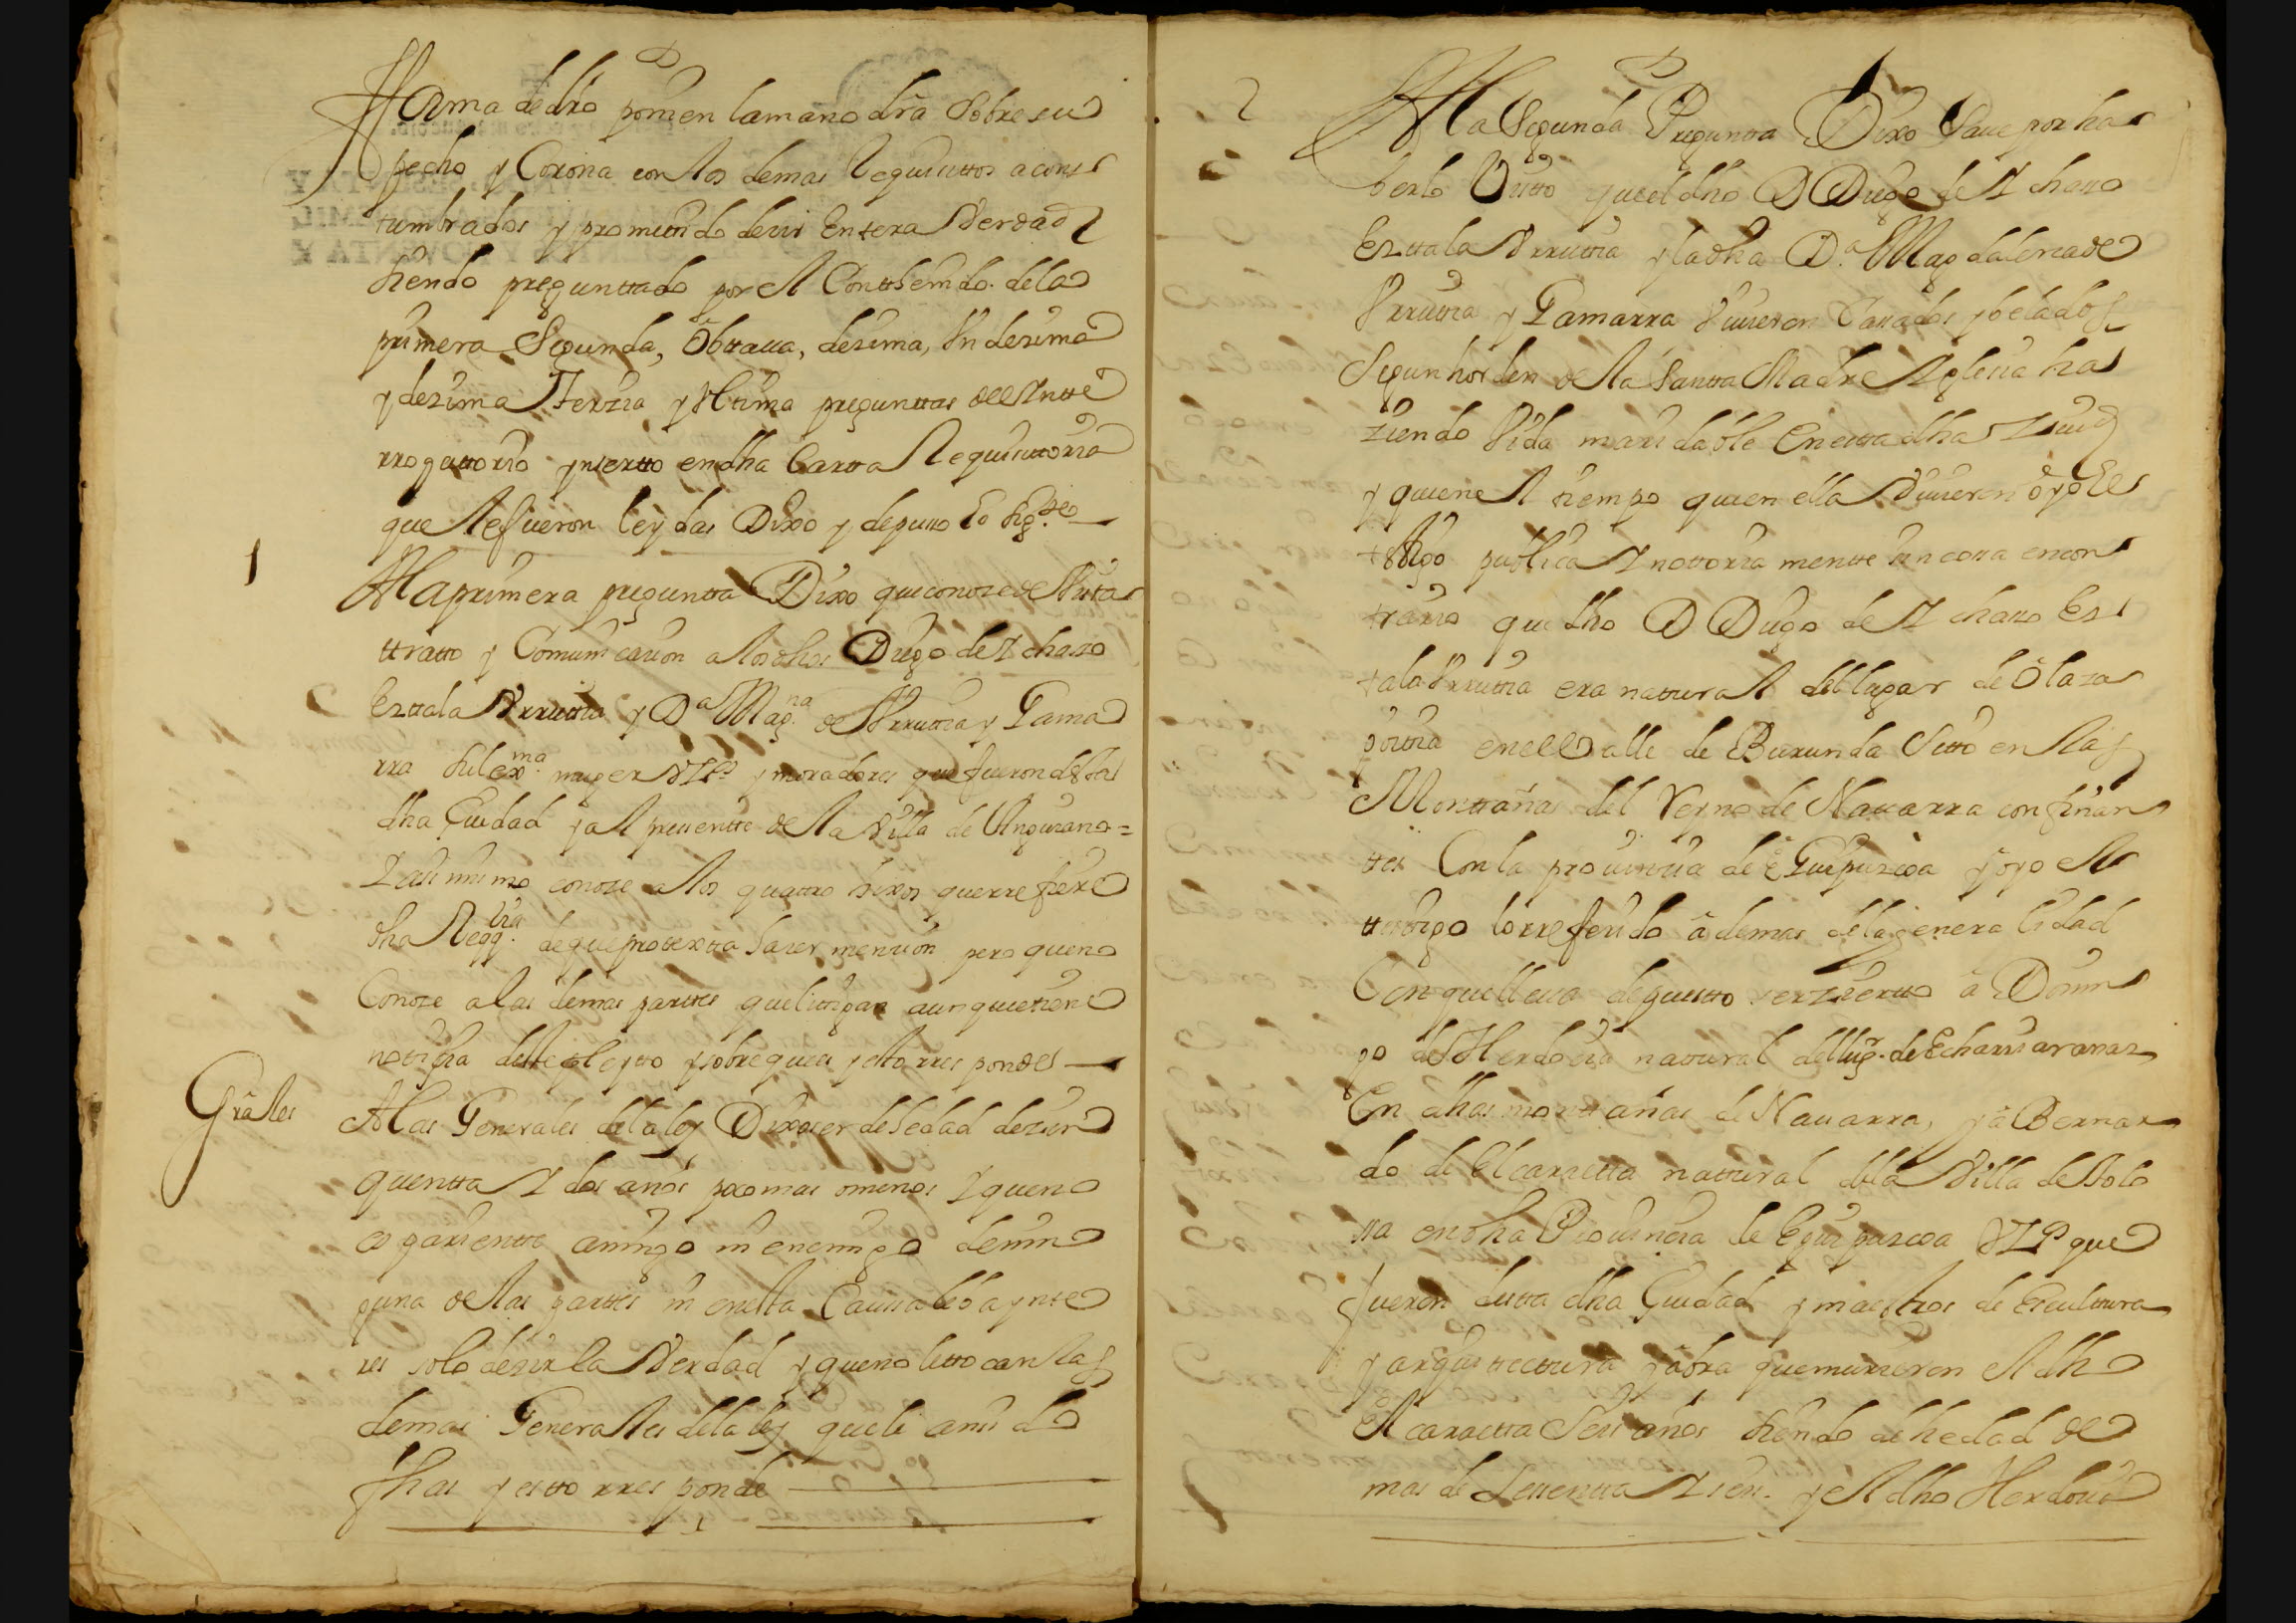 forma de dro poner en la mano dra Sobre su
pecho y Corona con los demas Requisittos acons
tumbrados y prometido desir Entera Verdad
siendo pregunttado por el Conthenido de la
primera Segunda, Obttaua, desima, Vndesima
y desima Terzia y Vltima pregunttas del Yntte
rrogattorio ynsertto en dha Cartta Requisittoria
que le fueron leydas Dixo y depuso lo sigte
1
A la primera preguntta Dixo que conoze de Vista
ttratto y Comunicasion a los dhos Diego de Ychaso
Eztala Vrruttia y Da Magna de Vrruttia y Gama
rra su lexma muger Vzos y moradores que fueron desta
dha Ciudad y al presentte de la Villa de Anguiano =
Y asi mismo conoze a los quattro hixos que rrefiere
dha Reqqria de que protextta haser mension pero que no
Conoze a las demas parttes que littigan aunque tiene
notisia deste pleytto y sobre que es y esto rresponde
Gräles
A las Generales de la ley Dixo ser de hedad de zin
quentta Y dos años poco mas o menos Y que no
es parientte amigo ni enemigo de nin
guna de las parttes ni en estta Caussa lleba ynte
res solo desir la Verdad y que no le ttocan las
demas Generales de la ley que le an sido
fhas y estto rresponde
2
A la Segunda Preguntta Dixo Saue por ha
berlo Visto que el dho D Diego de Ychaso
Ezttala Vrruttia y la dha Da Magdalena de
Vrruttia y Gamarra Viuieron Casados y belados
Segun horden de la Santta Madre Yglesia ha
ziendo Vida maridable En estta dha Ziud
y que en el tiempo que en ella Viuieron oyo este
testigo publica Y nottoria mentte sin cosa en con
trario que dho D Diego de Ychaso Ez
tala Vrruttia era nattural del lugar de Olaza
gouttia en el Valle de Burunda Sitto en las
Monttañas del Reyno de Nauarra confinan
ttes Con la prouinsia de Guipuzcoa y oyo este
ttestigo lo rreferido ademas de la generalidad
Con que lleua depuestto ser Zierttto a Domin
go de Herdozia nattural del lugr. de Echarri aranaz
En dhas monttañas de Nauarra, y a Bernar
do de Elcaraetta nattural de la Villa de Tolo
sa en dha Prouinsia de Eguipuzcoa Vzos que
fueron de estta dha Ciudad y maestros de Esculttura
y arquittecttura y abra que murieron el dho
Elcaraetta Seis años siendo de hedad de
mas de Settentta Y seis. y el dho Herdozia